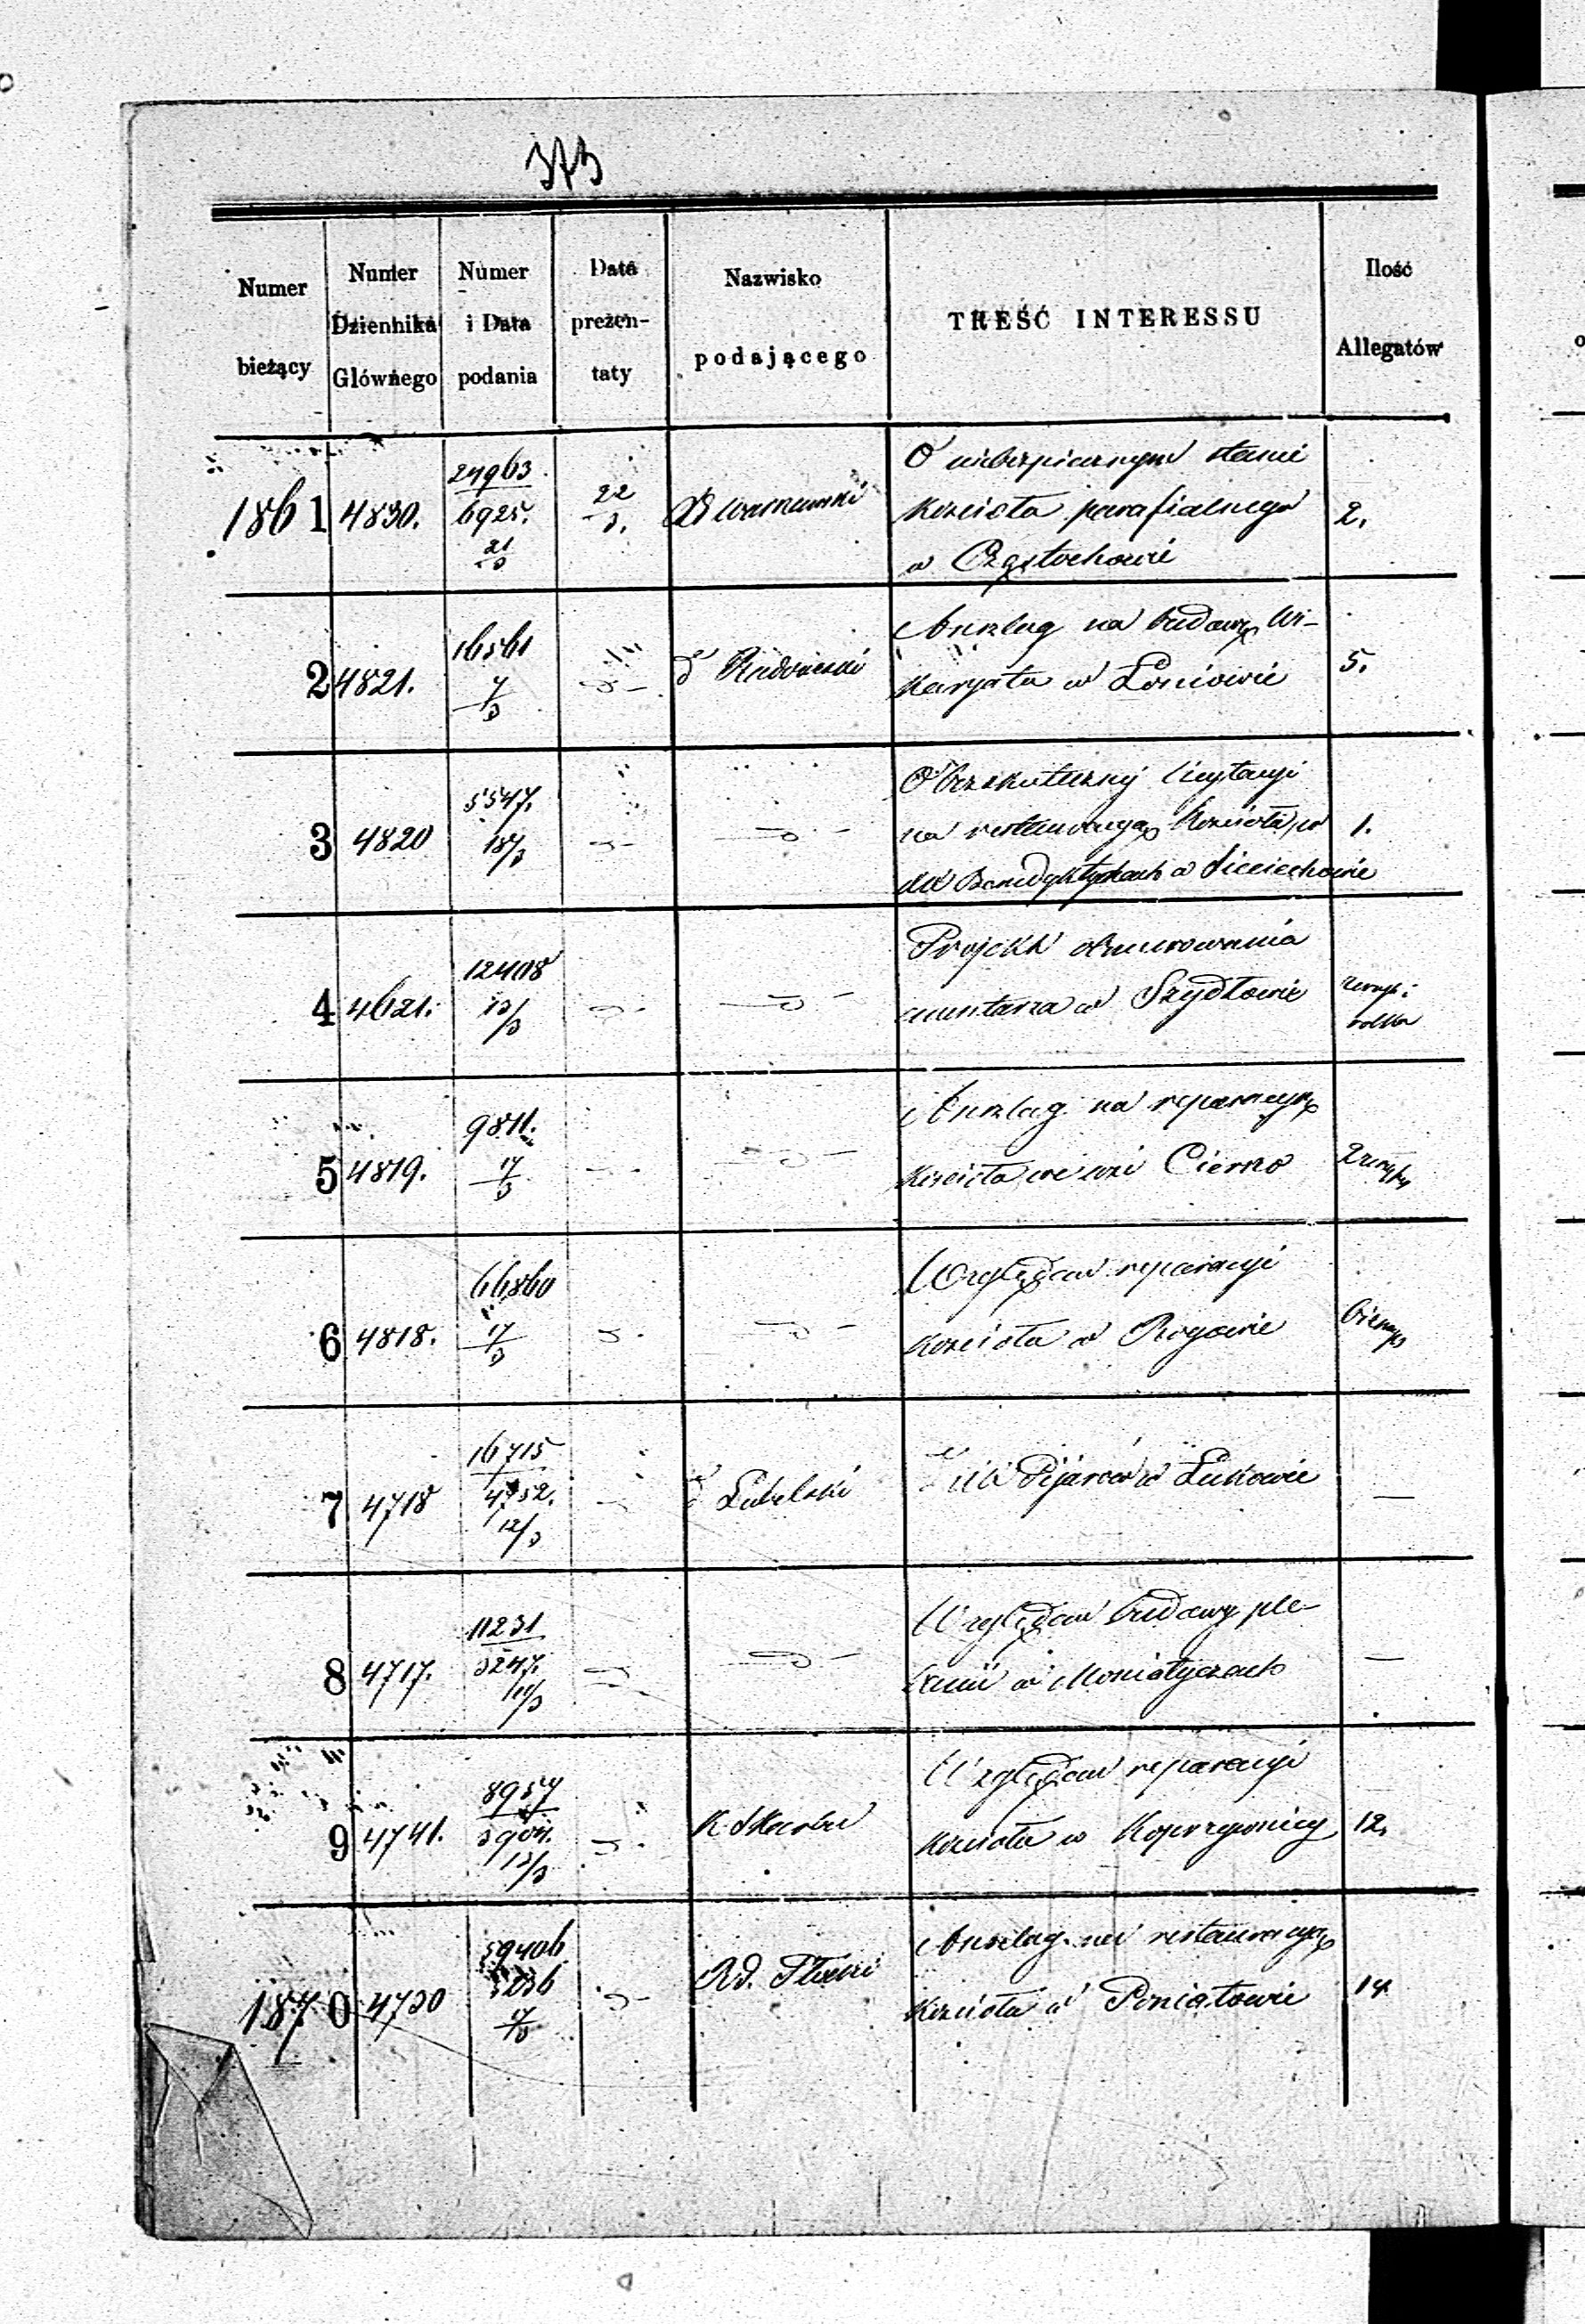 373
Numer bieżący
Numer Dziennika Głównego
Numer i Data podania
Data prezentaty
Nazwisko podającego
TREŚĆ INTERESSU
Ilość Allegatów
1861 4830. 24963 6925. 21/3 22/3. Warszawski
O niebezpiecznym stanie
Kościoła parafialnego 2.
w Częstochowie
2 4821. 16561 7/3 Radomski
Anszlag na budowę Wi-
karyatu w Łoniowie 5.
3 4820 5547. 18/3
O bezskutecznej licytacyi
na restauracyą Kościoła po 1.
Benedyktynach w Sieciechowie
4 4621. 12408 13/3
Projekt obmurowania
cmentarza w Szydłowie
5 4819. 9811. 17/3
Anszlag na reparacyą
Kościoła we wsi Cierno
6 4818. 66860 17/3
Względem reparacyi
Kościoła w Rogowie
7 4718 16715 4752. 12/3 Lubelski
Pijarów w Łukowie —
8 4717. 11231 3247. 11/3
Względem budowy ple-
banii w Moniatyczach —
9 4741. 8957 3904. 13/3 K. Skarbu
Względem reparacyi
Kościoła w Koprzywnicy 12.
1870 4730 39406 5236 Rd. Płocki
Anszlag na restauracyą
Kościoła w Poniatowie 14